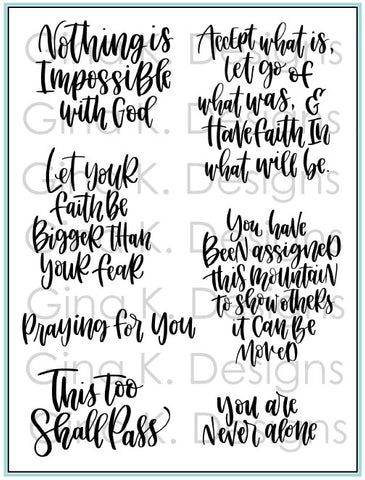 Nothing is
Impossible
with God
Let your
faith be
Bigger than
your fear
Praying for you
This too
Shall Pass
Accept what is,
let go of
what was, &
Have faith In
what will be.
You have
Been assigned
this mountain
to show others
it can Be
Moved
You are
Never alone
Gina K. Designs
Gina K. Designs
Gina K. Designs
Gina K. Designs